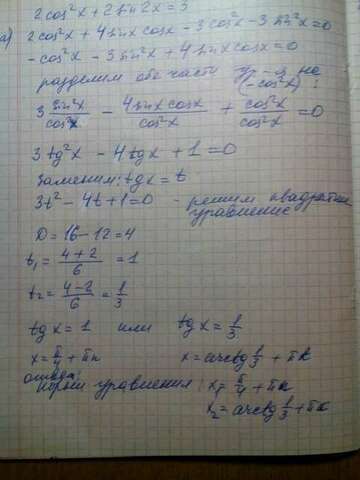 2cos²x + 2sin2x = 3
а) 2cos²x + 4sinx cosx - 3cos²x - 3sin²x = 0
-cos²x - 3sin²x + 4sinx cosx = 0
разделим обе части ур-я на (-cos²x):
3 sin²x/cos²x - 4sinx cosx/cos²x + cos²x/cos²x = 0
3tg²x - 4tgx + 1 = 0
Заменим: tgx = t
3t² - 4t + 1 = 0 - решим квадратное уравнение
D = 16 - 12 = 4
t₁ = (4+2)/6 = 1
t₂ = (4-2)/6 = 1/3
tgx = 1 или tgx = 1/3
x = π/4 + πn x = arctg 1/3 + πk
корни уравнения: x₁ = π/4 + πn
x₂ = arctg 1/3 + πk